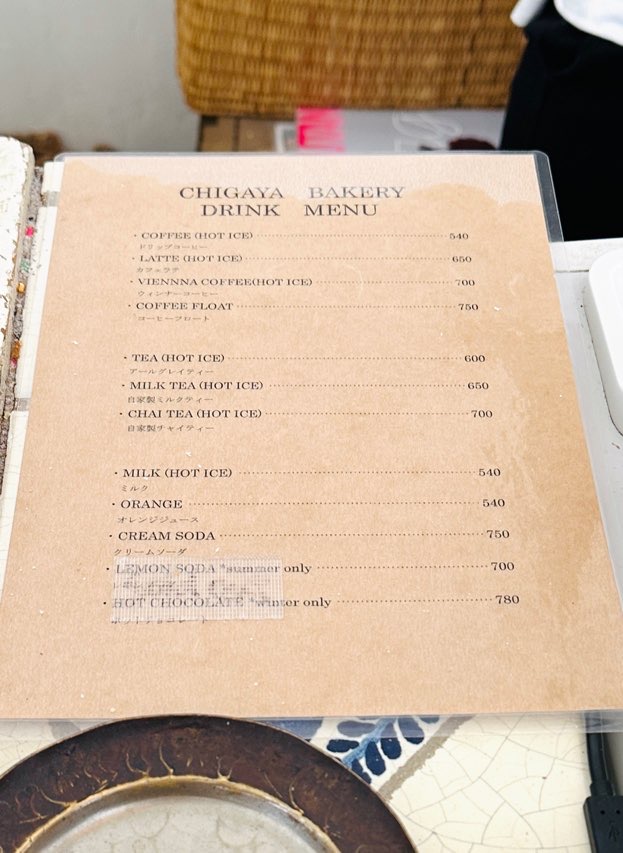 CHIGAYA BAKERY
DRINK MENU
・COFFEE (HOT ICE) 540
ドリップコーヒー
・LATTE (HOT ICE) 650
カフェラテ
・VIENNNA COFFEE(HOT ICE) 700
ウィンナーコーヒー
・COFFEE FLOAT 750
コーヒーフロート
・TEA (HOT ICE) 600
アールグレイティー
・MILK TEA (HOT ICE) 650
自家製ミルクティー
・CHAI TEA (HOT ICE) 700
自家製チャイティー
・MILK (HOT ICE) 540
ミルク
・ORANGE 540
オレンジジュース
・CREAM SODA 750
クリームソーダ
・LEMON SODA *summer only 700
・HOT CHOCOLATE *winter only 780